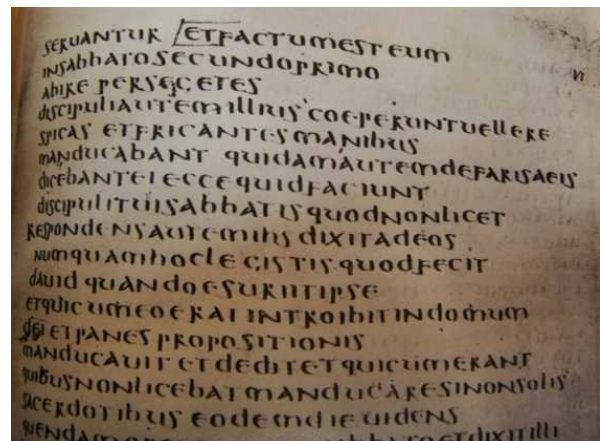 SERUANTUR ETFACTUMEST EUM
INSABBATOSECUNDOPRIMO VI
ABIRE PERSEGETES
DISCIPULIAUTEMILLIUS COEPERUNTUELLERE
SPICAS ETFRICANTESMANIBUS
MANDUCABANT QUIDAMAUTEMDEFARISAEIS
DICEBANTEI ECCEQUIDFACIUNT
DISCIPULITUISABBATISQUODNONLICET
RESPONDENSAUTEMIHS DIXITADEOS
NUMQUAMHOCLEGISTIS QUODFECIT
DAUID QUANDOESURIITIPSE
ETQUICUMEOERAT INTROIBITINDOMUM
DEI ETPANES PROPOSITIONIS
MANDUCAUIT ETDEDITETQUICUMERANT
QUIBUSNONLICEBATMANDUCARESINONSOLIS
SACERDOTIBUS EODEMDIEUIDENS
ETDIXITILLI